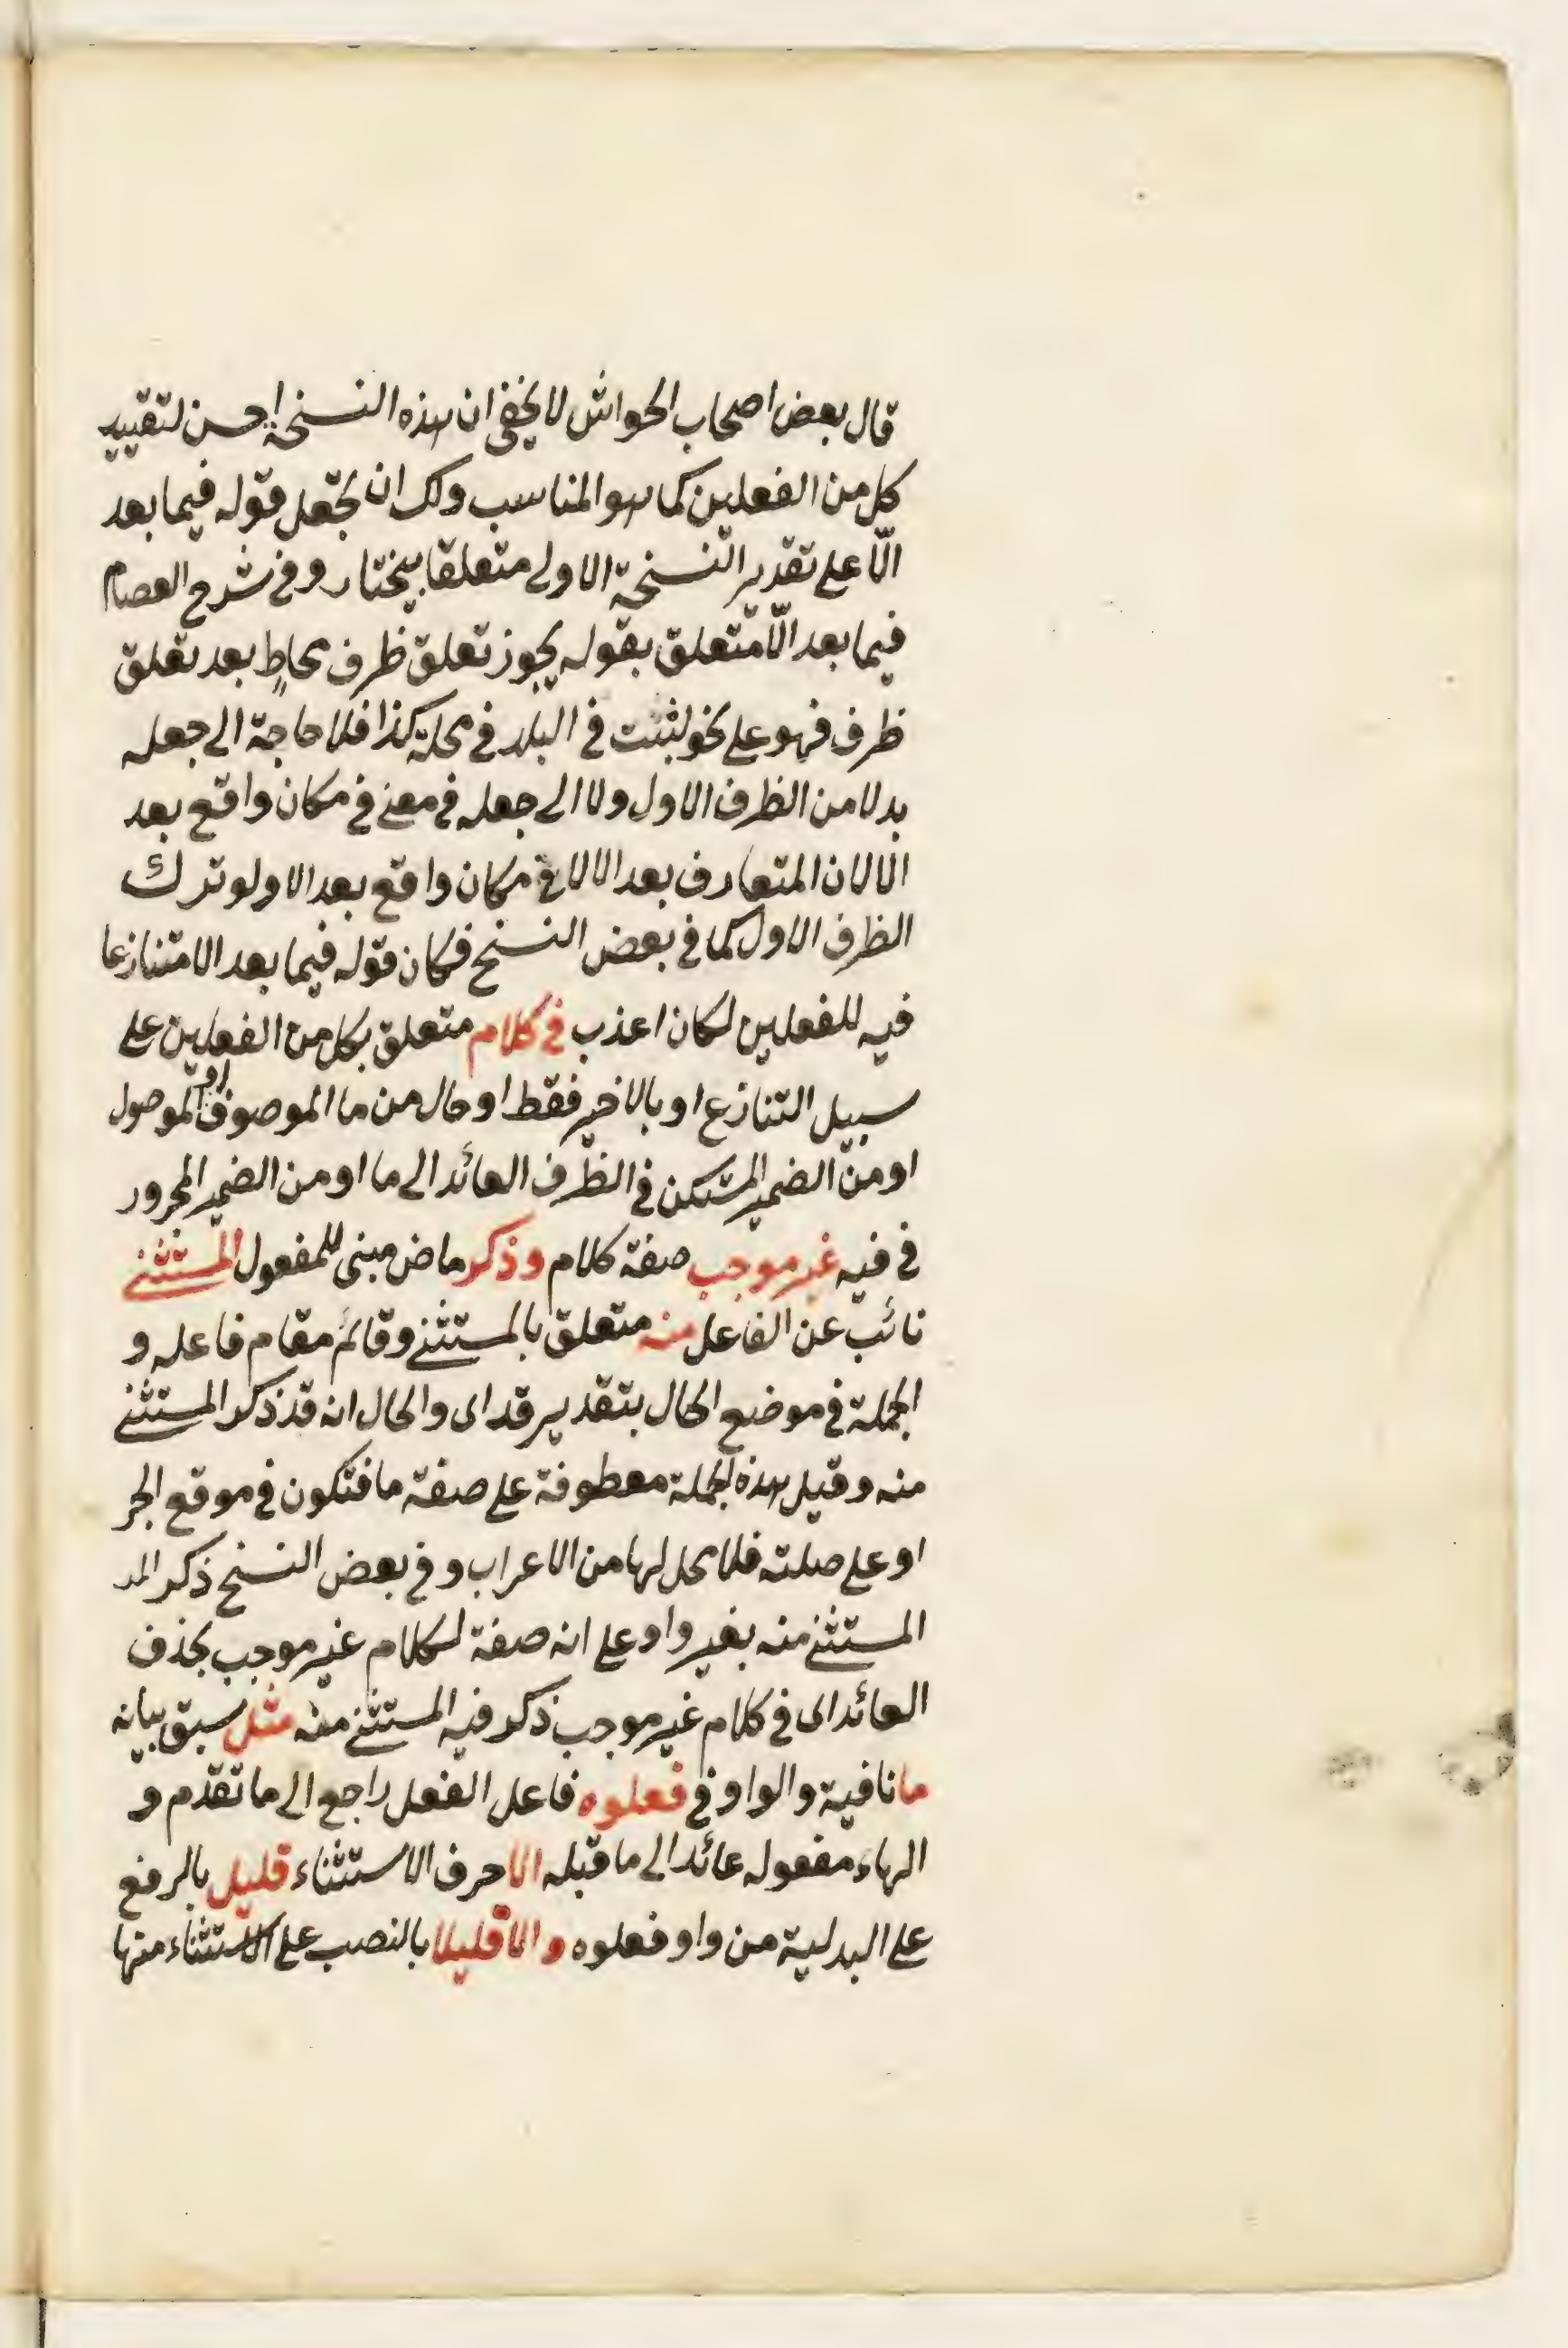 قال بعض اصحاب الحواش لا يخفى ان هذه النسخة احسن لتقييد
كل من الفعلين كما هو المناسب ولك ان تجعل قوله فيما بعد
الّا على تقدير النسخة الاولى متعلقا بيختار وفى شرح العصام
فيما بعد الّا متعلق بقوله يجوز تعلق ظرف محاطٍ بعد تعلق
ظرف فهو على نحو لبثت فى البلد فى محلة كذا فلا حاجة الى جعله
بدلا من الظرف الاول ولا الى جعله فى معنى فى مكان واقع بعد
الا لان المتعارف بعد الا لا فى مكان واقع بعد الا ولو ترك
الظرف الاول كما فى بعض النسخ فكان قوله فيما بعد الا متنازعا
فيه للفعلين لكان اعذب فى كلام متعلق بكل من الفعلين على
سبيل التنازع او بالاخير فقط او حال من ما الموصوف او الموصول
او من الضمير المستكن فى الظرف العائد الى ما او من الضمير المجرور
فى فيه غير موجب صفة كلام وذكر ماض مبنى للمفعول المستثنى
نائب عن الفاعل منه متعلق بالمستثنى وقائم مقام فاعله و
الجملة فى موضع الحال بتقدير قد اى والحال انه قد ذكر المستثنى
منه وقيل هذه الجملة معطوفة على صفة ما فتكون فى موقع الجر
او على صلته فلا محل لها من الاعراب وفى بعض النسخ ذكر المـ
المستثنى منه بغير واو على انه صفة لكلام غير موجب بحذف
العائد اى فى كلام غير موجب ذكر فيه المستثنى منه مثل سبق بيانه
ما نافية والواو فى فعلوه فاعل الفعل راجع الى ما تقدم و
الهاء مفعوله عائد الى ما قبله الا حرف الاستثناء قليل بالرفع
على البدلية من واو فعلوه والا قليلا بالنصب على الاستثناء منها